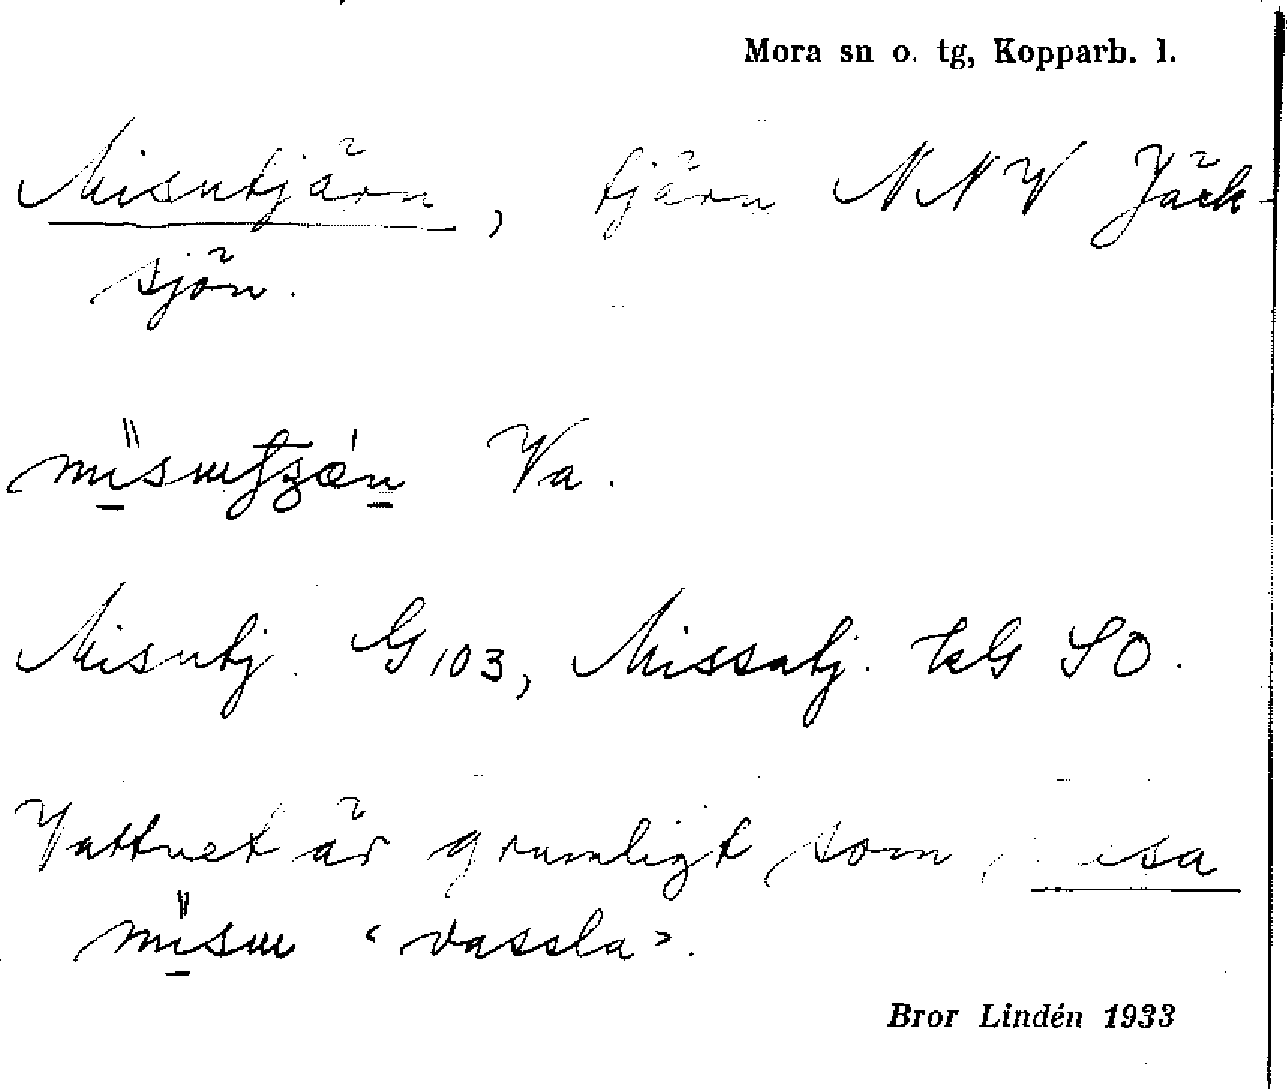 Mora sn o. tg, Kopparb. l.
Misutjärn, tjärn NNV Jäck-
sjön.
Va.
Misutj. G 103, Missatj. SO.
Vattnet är grumligt som
"vassla".
Bror Lindén 1933